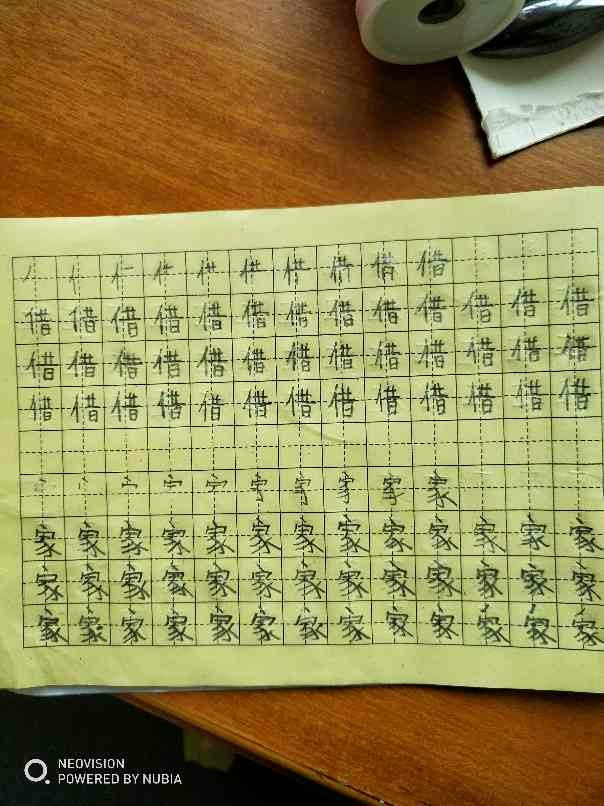 亻 借
借 借 借 借 借 借 借 借 借 借 借 借 借
借 借 借 借 借 借 借 借 借 借 借 借 借
借 借 借 借 借 借 借 借 借 借 借 借 借
宀 家
家 家 家 家 家 家 家 家 家 家 家 家 家
家 家 家 家 家 家 家 家 家 家 家 家 家
家 家 家 家 家 家 家 家 家 家 家 家 家
NEOVISION
POWERED BY NUBIA